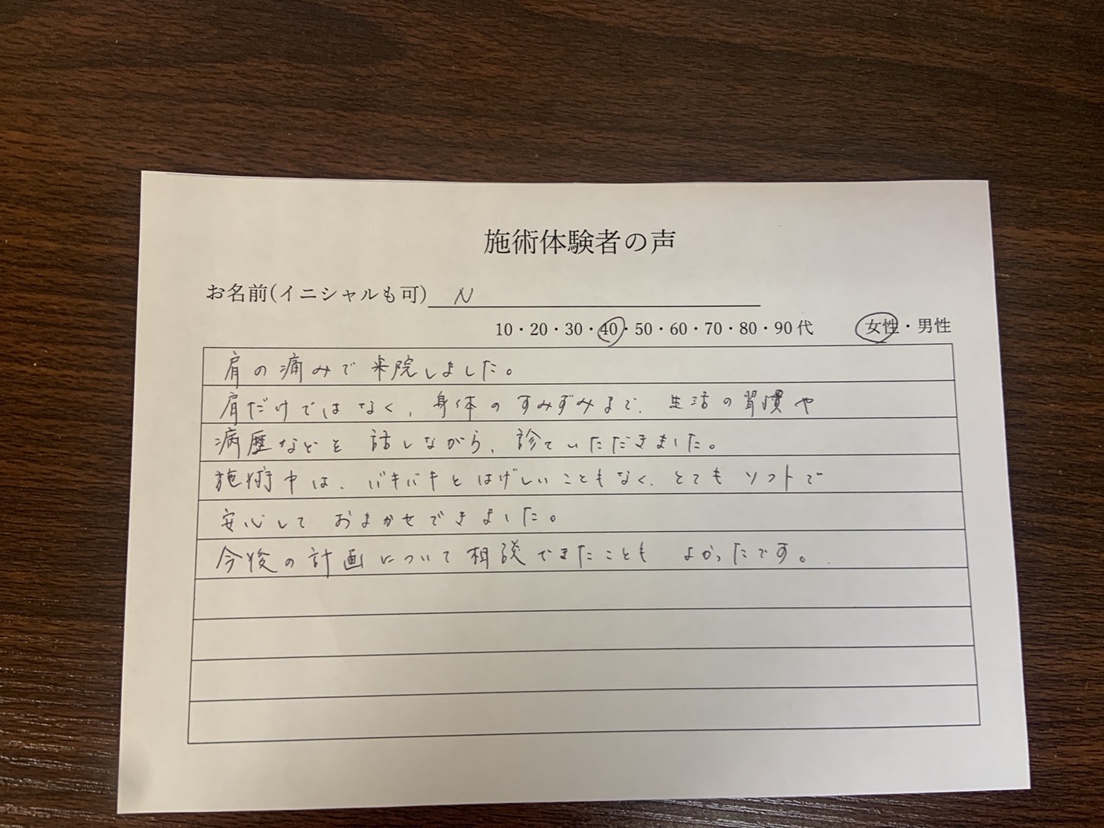 施術体験者の声
お名前(イニシャルも可) N
10・20・30・40・50・60・70・80・90代 女性・男性
肩の痛みで来院しました。
肩だけではなく、身体のすみずみまで、生活の習慣や
病歴などを話しながら、診ていただきました。
施術中は、バキバキとはげしいこともなく、とてもソフトで
安心しておまかせできました。
今後の計画について相談できたことも よかったです。